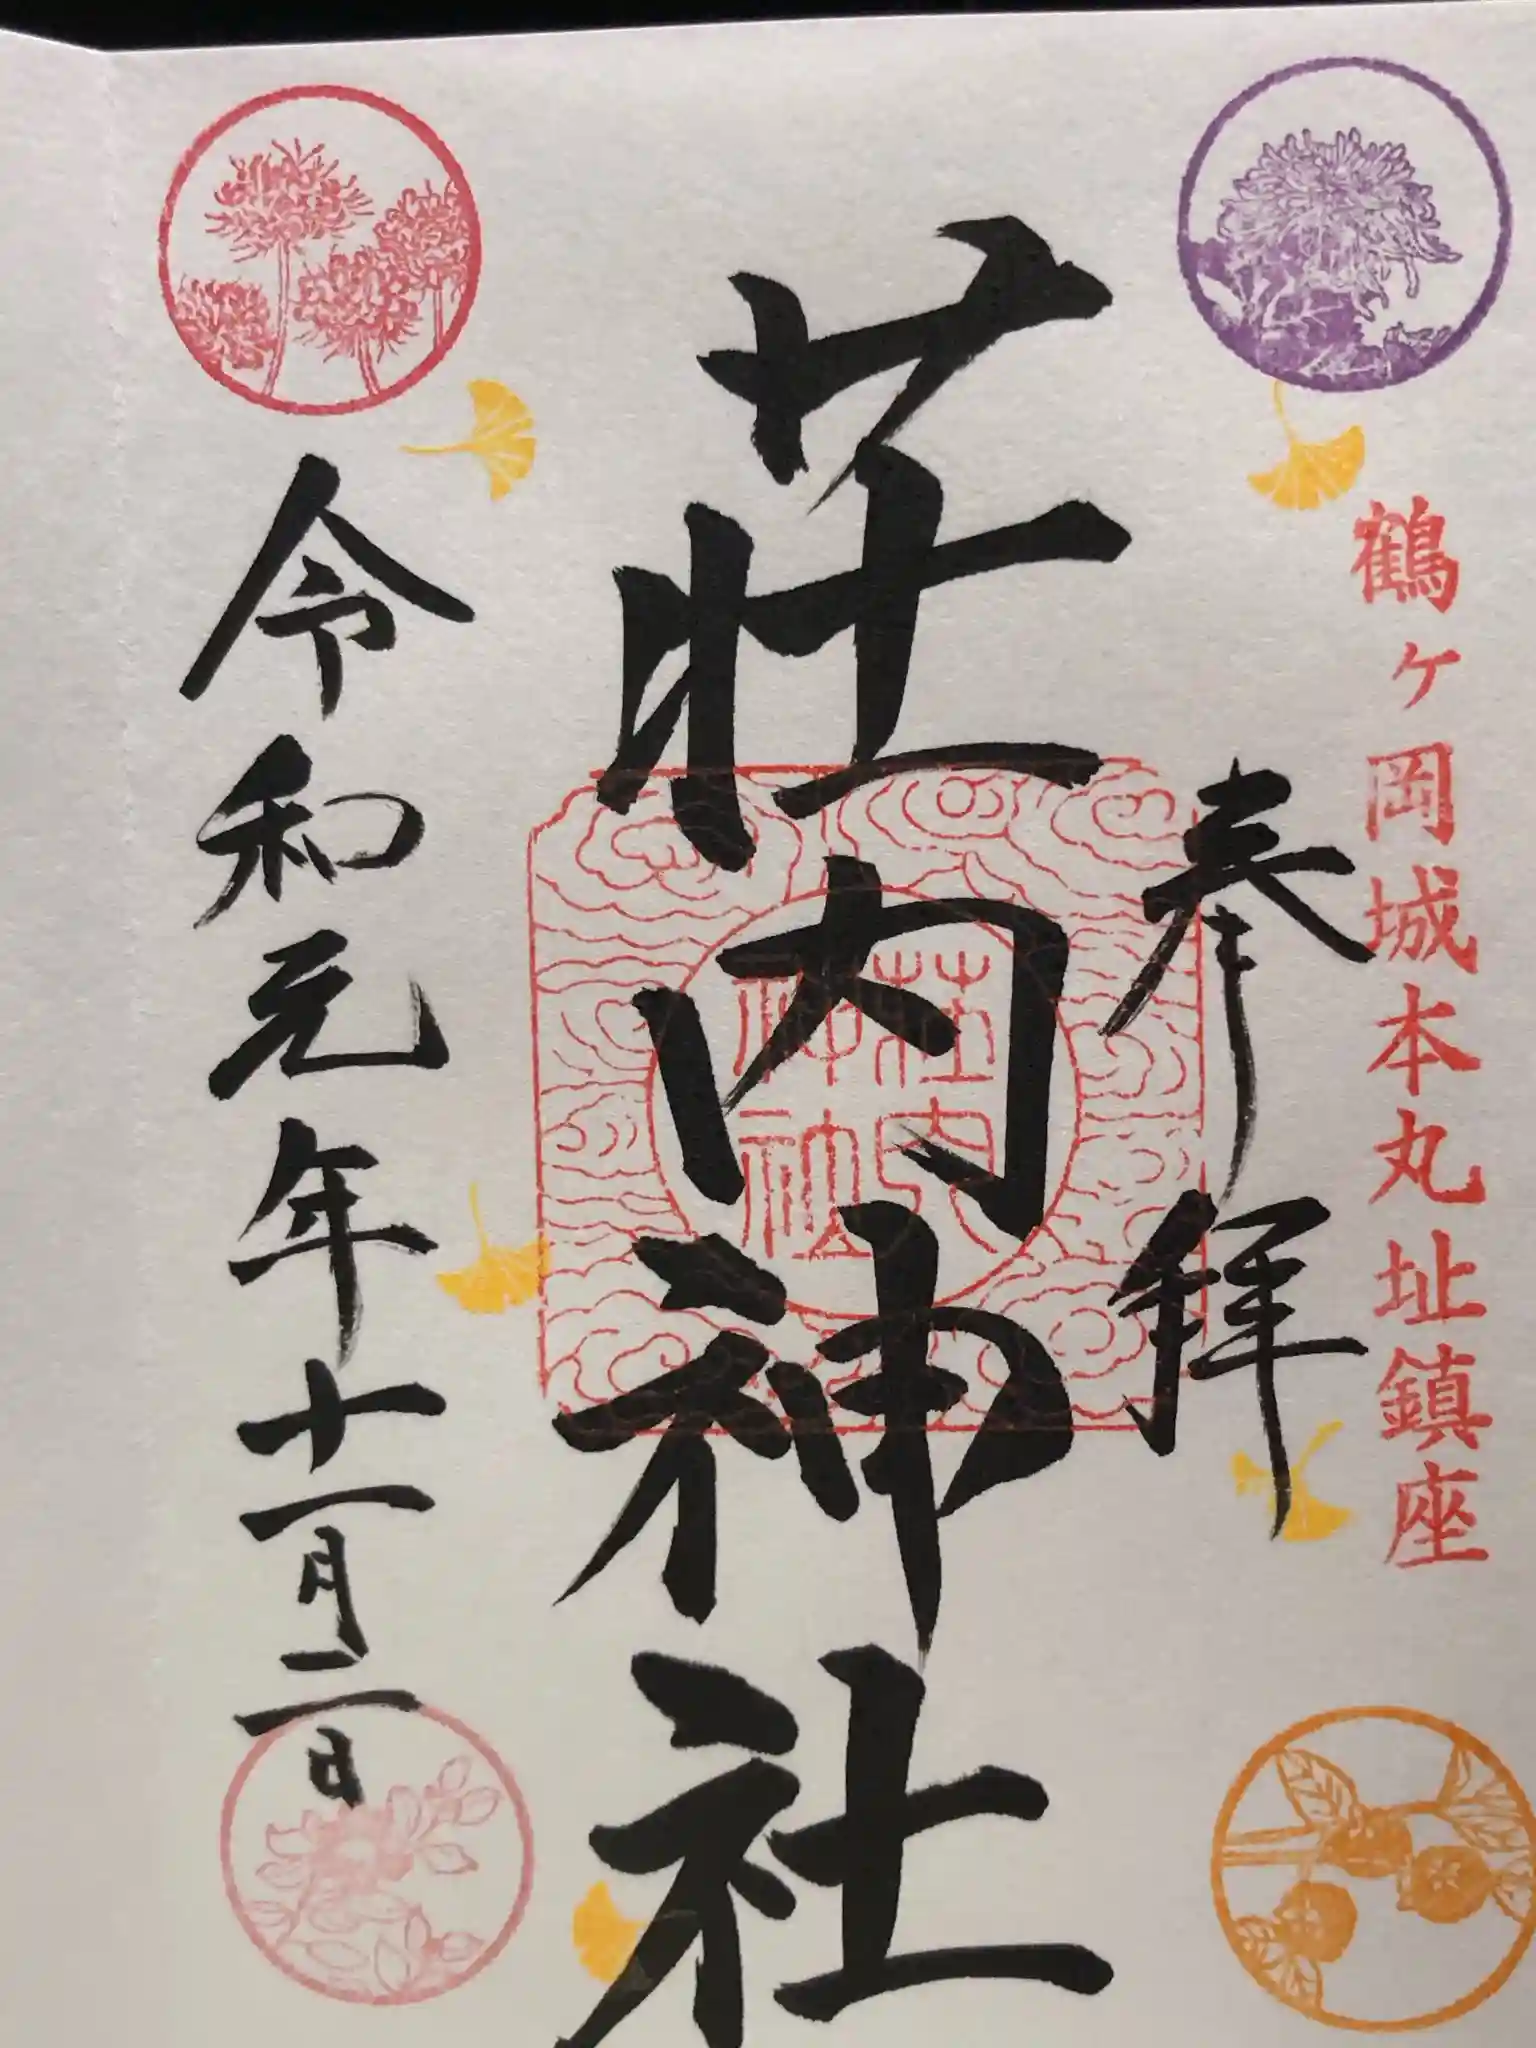 鶴ヶ岡城本丸址鎮座
奉拝
荘内神社
荘内
神社
令和元年十一月二日